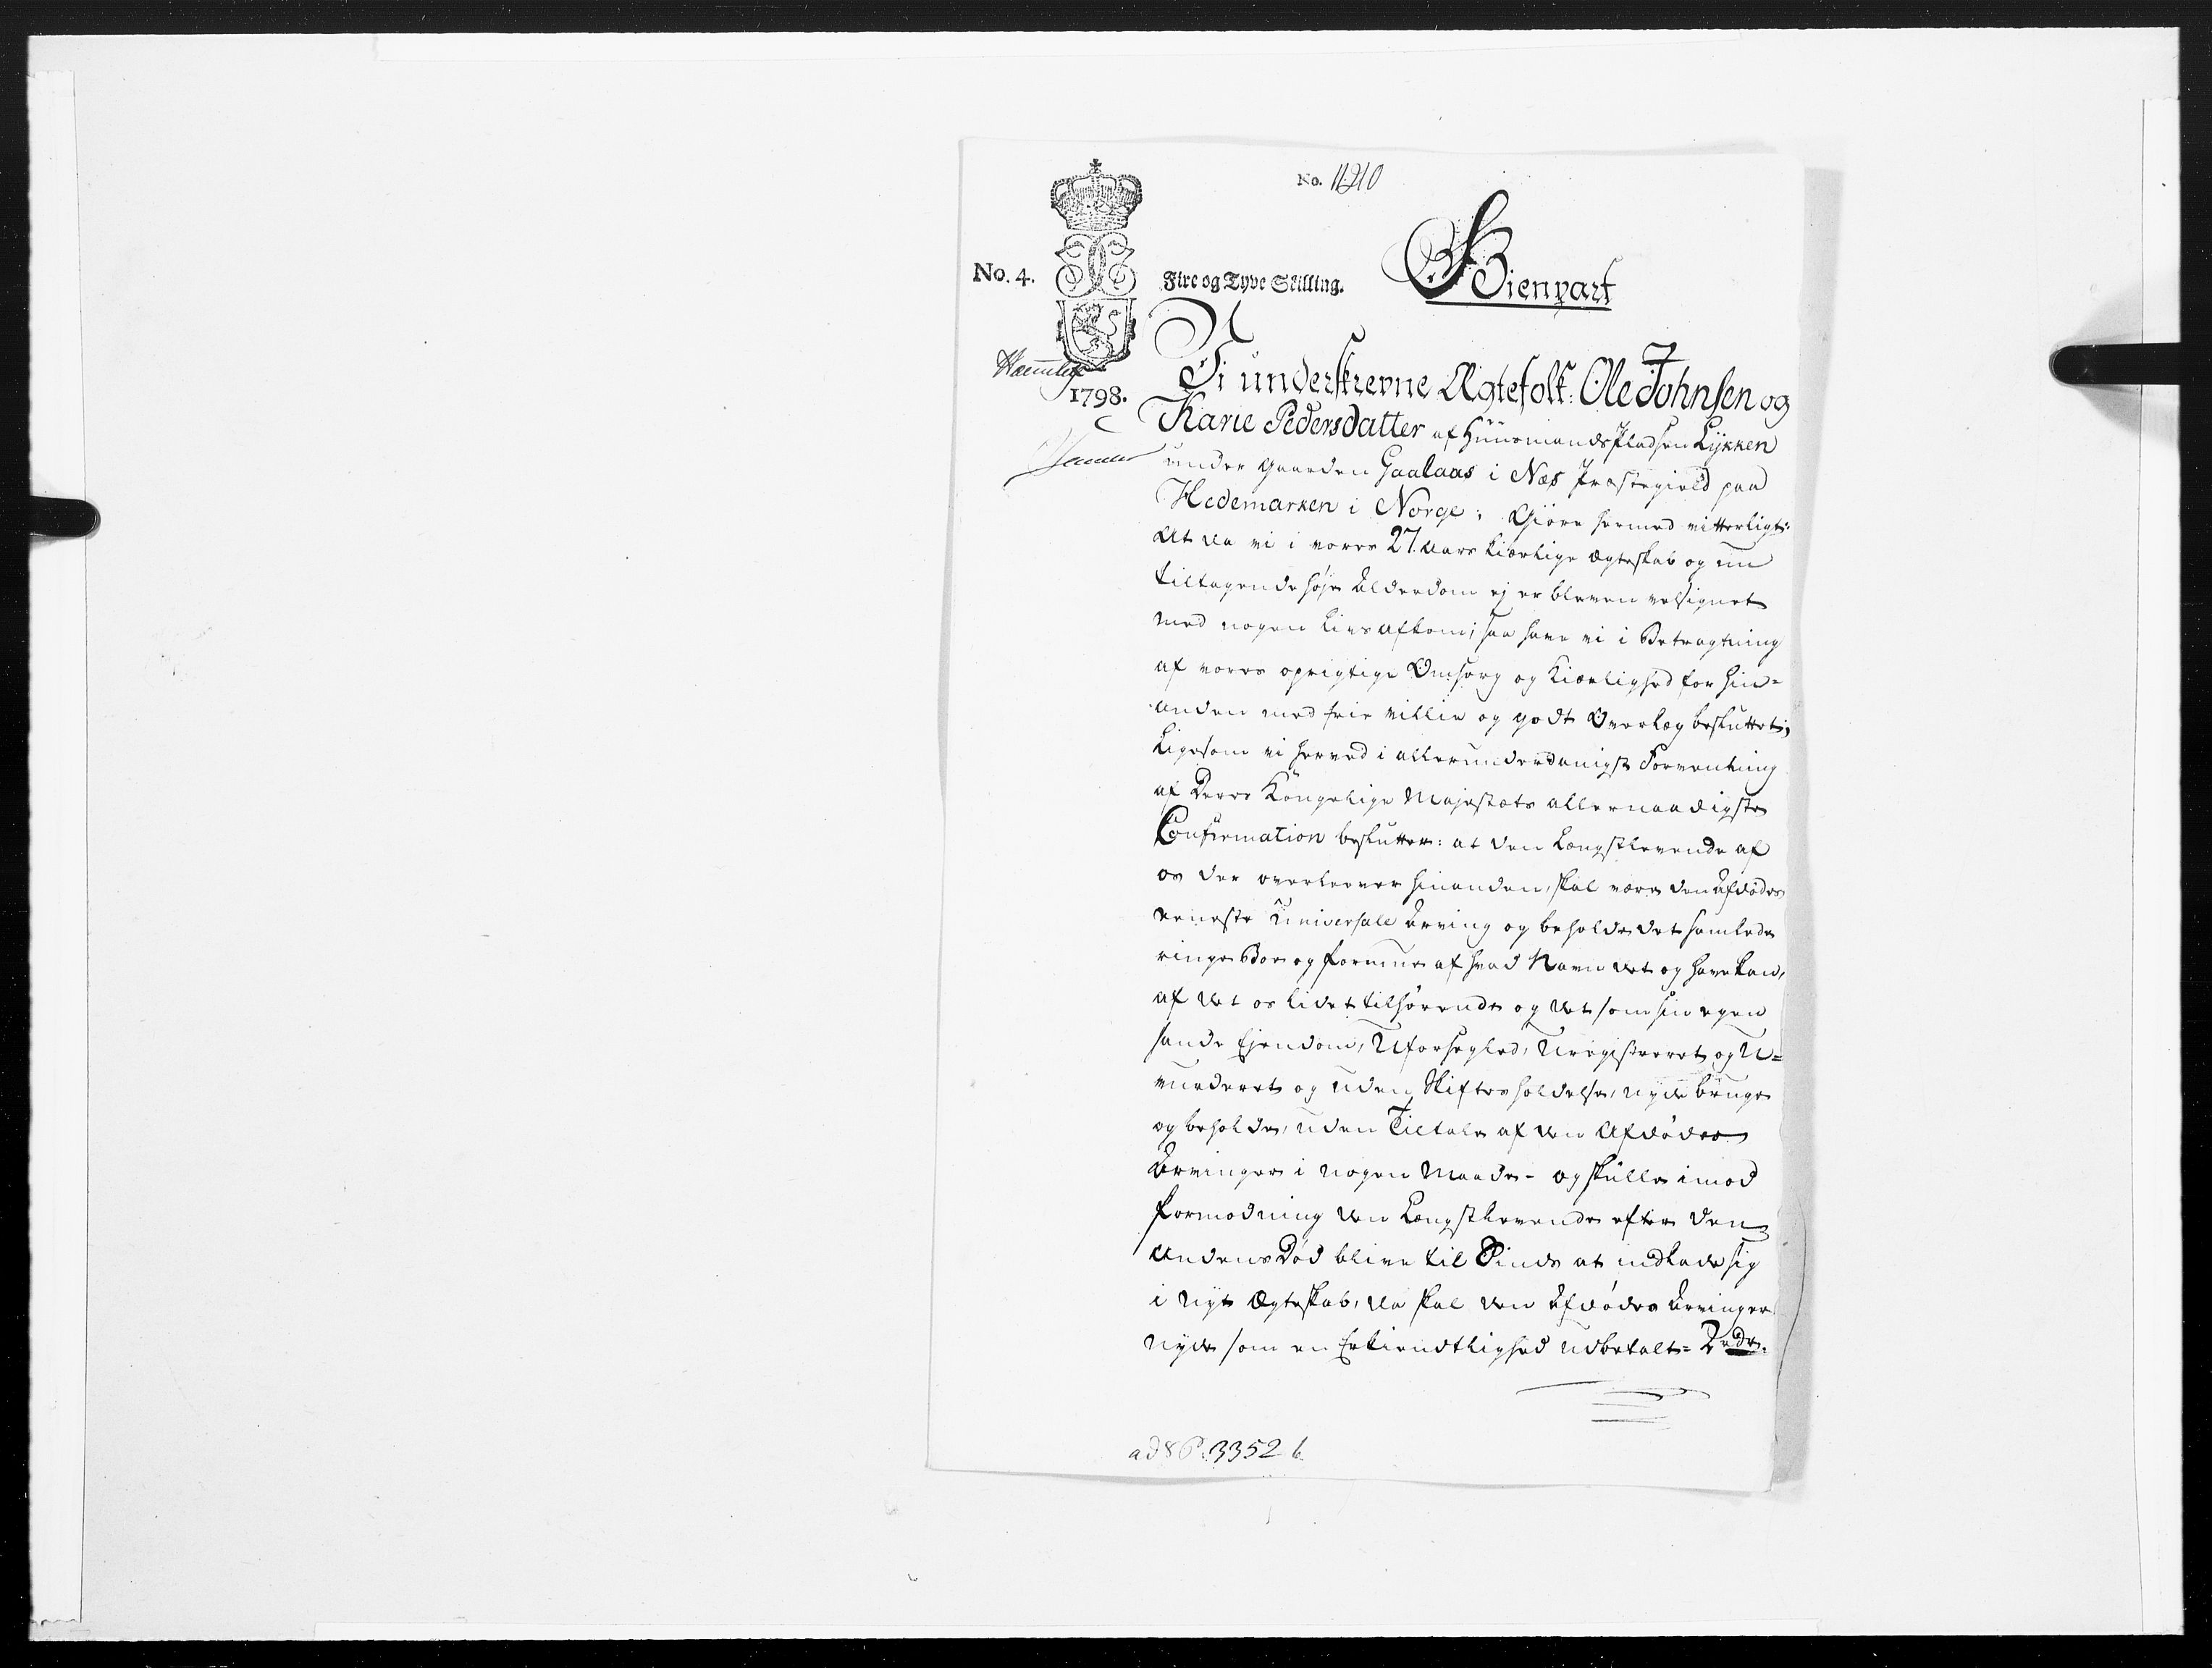 No. 11210
No. 4.
Fire og Tyve Skilling.
Gienpart
1798.
Vi underskrevne Ægtefolk: Ole Johnsen og
Karie Pedersdatter af Huusmands Pladsen Lykken
under Gaarden Gaalaas i Næs Præstegield paa
Hedemarken i Norge; Giøre hermed vitterligt:
At da vi i vores 27 Aars kiærlige Ægteskab og nu
tiltagende høje Alderdom ej er bleven velsignet
med nogen Livs Afkom; saa have vi i Betragtning
af vores oprigtige Omsorg og Kiærlighed for hin-
anden med frie Villie og godt Overlæg besluttet;
Ligesom vi herved i allerunderdanigst Forventning
af Deres Kongelige Majestæts allernaadigste
Confirmation beslutter: at den Længstlevende af
os der overlever hinanden, skal være den Afdødes
eeneste Universal Arving og beholde det samlede
ringe Boe og Formue af hvad Navn det og have kan,
af det os lidet tilhørende og det som sin egen
sande Ejendom, Uforsegled, Uregistreret og U-
vurderet og uden Skiftes holdelse, nyde bruge
og beholde, uden Tiltale af den Afdødes
Arvinger i nogen Maade - og skulle imod
Formodning den Længstlevende efter den
Andens Død blive til Sinds at indlade sig
i nyt Ægteskab, da skal den Afdødes Arvinger
nyde som en Erkiendtlighed udbetalt = 2 rdr.
ad 8 P. 3352 b